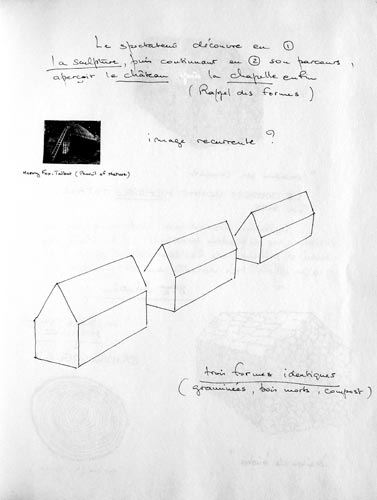 Le spectateur découvre en ①
la sculpture, puis continuant en ② son parcours,
aperçoit le château puis la chapelle enfin
(Rappel des formes)
image recurrente ?
Henry Fox-Talbot (Pencil of Nature)
trois formes identiques
(graminées, bois morts, compost)